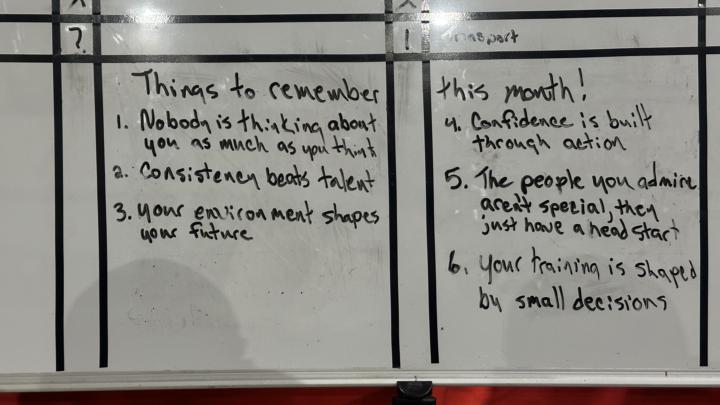 ?
Things to remember
1. Nobody is thinking about
you as much as you think
2. Consistency beats talent
3. your environment shapes
your future
!
this month!
4. Confidence is built
through action
5. The people you admire
aren't spezial, they
just have a head start
6. your training is shaped
by small decisions